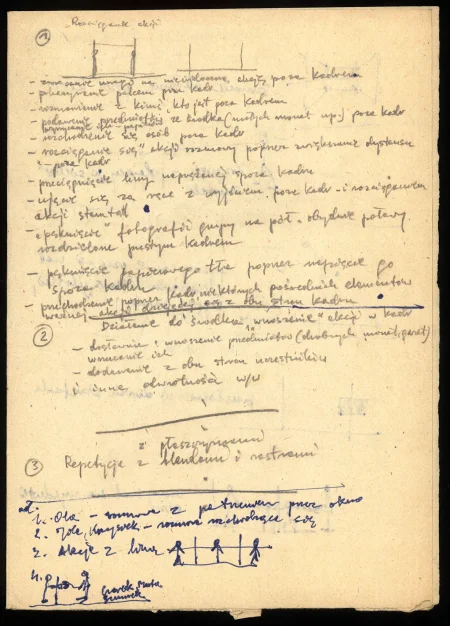 Rozciąganie akcji
①
- zwracanie uwagi na niewidoczną akcję poza kadrem
- pokazywanie palcem poza kadr
- rozmawianie z kimś, kto jest poza kadrem
- podawanie przedmiotów ze środka (małych monet np.) poza kadr
- rozchodzenie się osób poza kadr
- "rozciąganie się" akcji rozmowy poprzez zwiększanie dystansu
- poza kadr
- przeciągnięcie liny naprężonej spoza kadru
- ujęcie się za ręce z wyjściem poza kadr - i rozciąganiem
akcji
- "pęknięcie" fotografii grupy na pół - obydwie połowy
rozdzielone pustym kadrem
- pęknięcie papierowego tła poprzez napięcie go
spoza kadru
- przechodzenie poprzez kadr niektórych pośrednich elementów
ważnej akcji dziejącej się z obu stron kadru
②
Działanie do środka, "wnoszenie" akcji w kadr
- dosłownie: wnoszenie przedmiotów (drobnych monet,
wrzucanie ich
- dodawanie z obu stron uczestników
i inne odwrotności w/w
z płaszczyznami
③ Repetycje z blendami i rastrami
ad.
1. Ola - rozmowa z patrzeniem przez okno
2. rozmowa rozchodząca się
3. Akcje z liną
4.